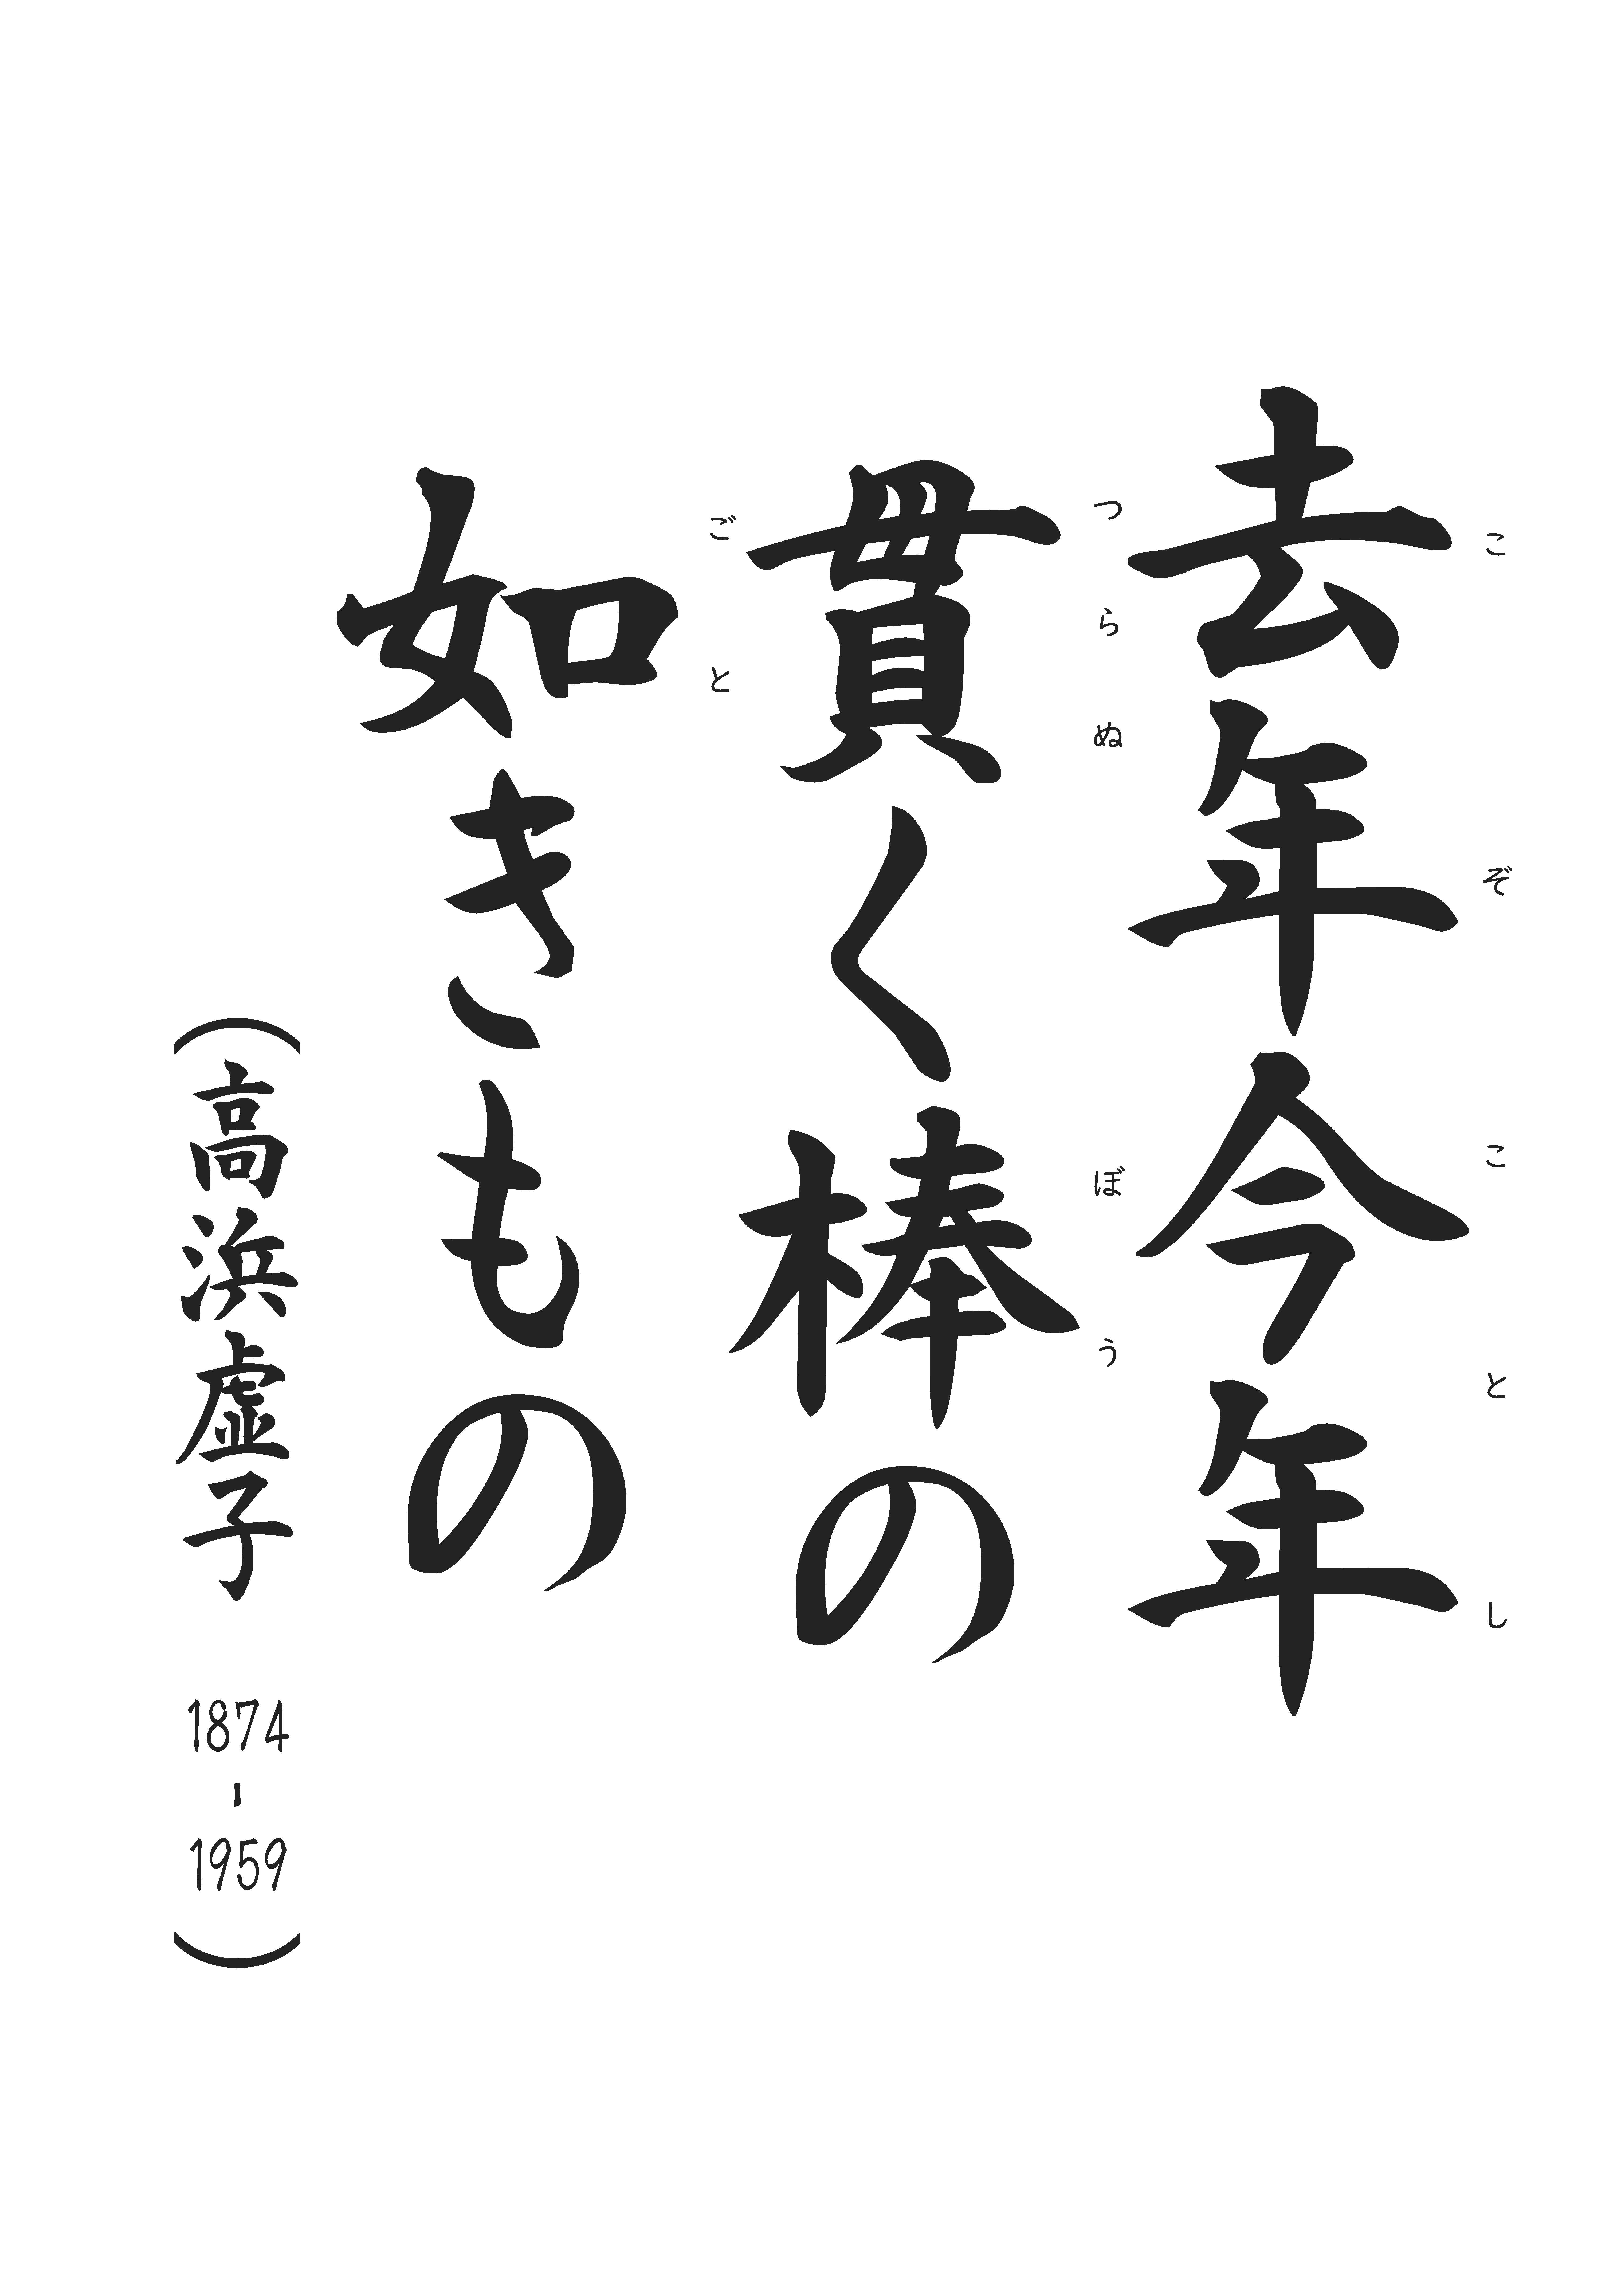 去年今年
こぞことし
貫く棒の
つらぬぼう
如きもの
ごと
（高浜虚子 1874-1959）